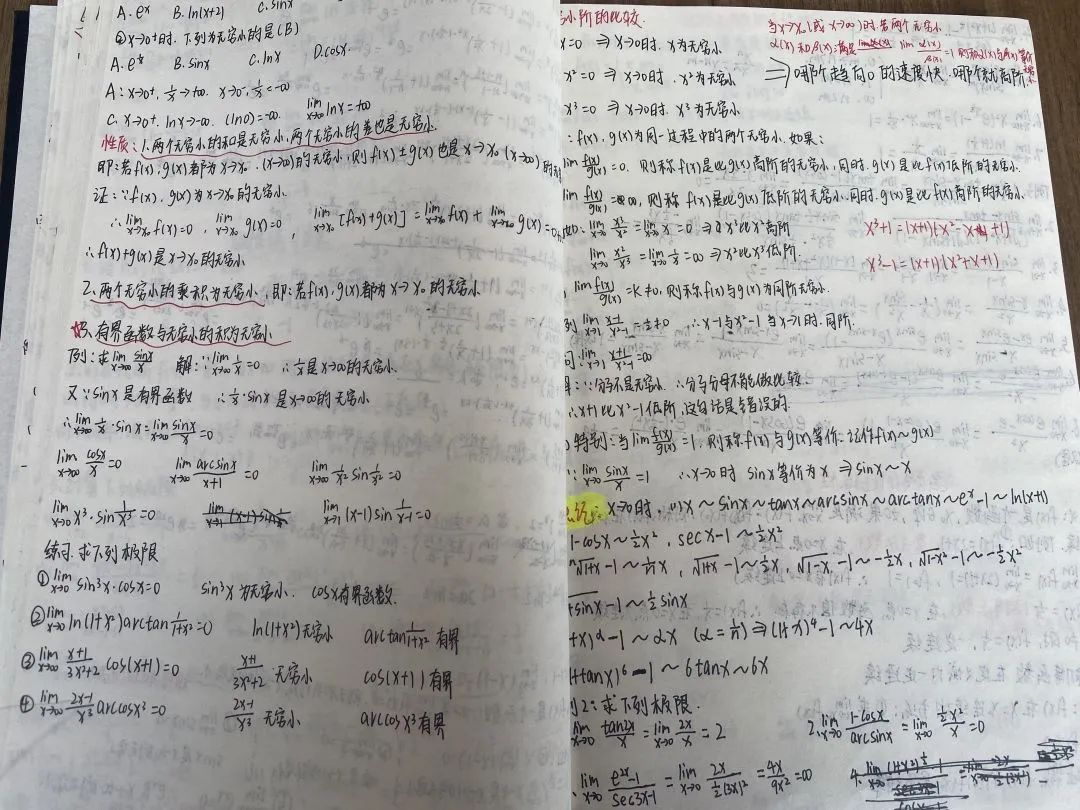 A. eˣ B. ln(x+2) C. sinx
②x→0⁺时. 下列为无穷小的是(B)
A. e^(1/x) B. sinx C. lnx D. cosx
A: x→0⁺, 1/x→+∞. x→0⁻, 1/x=-∞
C. x→0⁺. lnx→-∞. (ln0)=-∞. lim(x→+∞) lnx=+∞
性质: 1. 两个无穷小的和是无穷小, 两个无穷小的差也是无穷小.
即: 若f(x), g(x)都为x→x₀. (x→∞)的无穷小, 则f(x)±g(x)也是x→x₀(x→∞)的
证: ∵f(x), g(x)为x→x₀的无穷小
∴ lim(x→x₀) f(x)=0, lim(x→x₀) g(x)=0, lim(x→x₀) [f(x)+g(x)] = lim(x→x₀) f(x) + lim(x→x₀) g(x)=0
∴f(x)+g(x)是x→x₀的无穷小
2. 两个无穷小的乘积为无穷小, 即: 若f(x), g(x)都为x→x₀的无穷小
3. 有界函数与无穷小的积为无穷小
例: 求lim(x→∞) sinx/x 解: ∵lim(x→∞) 1/x=0 ∴1/x是x→∞的无穷小.
又∵sinx是有界函数 ∴1/x·sinx是x→∞的无穷小
∴lim(x→∞) 1/x·sinx=lim(x→∞) sinx/x=0
lim(x→∞) cosx/x=0 lim(x→∞) arcsinx/(x+1)=0 lim(x→∞) 1/x² sin 1/x²=0
lim(x→0) x³·sin 1/x³=0 lim(x→1) (x-1)sin 1/(x-1)=0
练习: 求下列极限
①lim(x→0) sin³x·cosx=0 sin³x为无穷小. cosx有界函数.
②lim(x→0) ln(1+x²)arctan 1/(1+x²)=0 ln(1+x²)无穷小 arctan 1/(1+x²) 有界
③lim(x→∞) (x+1)/(3x²+2) cos(x+1)=0 (x+1)/(3x²+2) 无穷小 cos(x+1)有界
④lim(x→∞) (2x-1)/x³ arccosx³=0 (2x-1)/x³ 无穷小 arccosx³有界
小阶的比较.
当x→x₀(或x→∞)时, 若两个无穷小
α(x)和β(x)满足 lim α(x)/β(x)=1, 则称α(x)与β(x)等价
x=0 ⇒x→0时. x为无穷小.
x²=0 ⇒x→0时. x²为无穷小. ⇒哪个趋向0的速度快. 哪个就高阶.
x³=0 ⇒x→0时. x³为无穷小.
: f(x), g(x)为同一过程中的两个无穷小. 如果:
lim f(x)/g(x)=0. 则称f(x)是比g(x)高阶的无穷小, 同时, g(x)是比f(x)低阶的无穷小.
lim f(x)/g(x)=∞, 则称f(x)是比g(x)低阶的无穷小, 同时. g(x)是比f(x)高阶的无穷小.
lim(x→0) x³/x²=lim(x→0) x=0 ⇒x³比x²高阶
x³+1=(x+1)(x²-x+1)
lim(x→0) x²/x³=lim(x→0) 1/x=∞ ⇒x²比x³低阶.
x³-1=(x+1)(x²+x+1)
lim f(x)/g(x)=K≠0, 则称f(x)与g(x)为同阶无穷小.
lim(x→1) (x-1)/(x²-1)=1/2≠0 ∴x-1与x²-1当x→1时. 同阶.
问: lim(x→1) (x+1)/(x²-1)=∞
解: ∵分子不是无穷小. ∴分子分母不能做比较.
∴x+1比x²-1低阶. 这句话是错误的.
特别: 当lim f(x)/g(x)=1. 则称f(x)与g(x)等价. 记作f(x)~g(x)
∵lim(x→0) sinx/x=1 ∴x→0时 sinx等价为x ⇒sinx~x
总结: x→0时, (1) x~sinx~tanx~arcsinx~arctanx~eˣ-1~ln(x+1)
1-cosx~½x², secx-1~½x²
ⁿ√(1+x)-1~1/n x, √(1+x)-1~½x, √(1-x)-1~-½x, √(1-x²)-1~-½x²
+sinx-1~½sinx
+x)^α-1~αx (α=1/n)⇒(1+x)⁴-1~4x
1+tanx)⁶-1~6tanx~6x
例2: 求下列极限.
lim(x→0) tan2x/x=lim(x→0) 2x/x=2 2. lim(x→0) (1-cosx)/arcsinx=lim(x→0) ½x²/x=0
lim(x→0) (e²ˣ-1)/(sec3x-1)=lim(x→0) 2x/(½(3x)²)=4x/9x²=∞ 4.